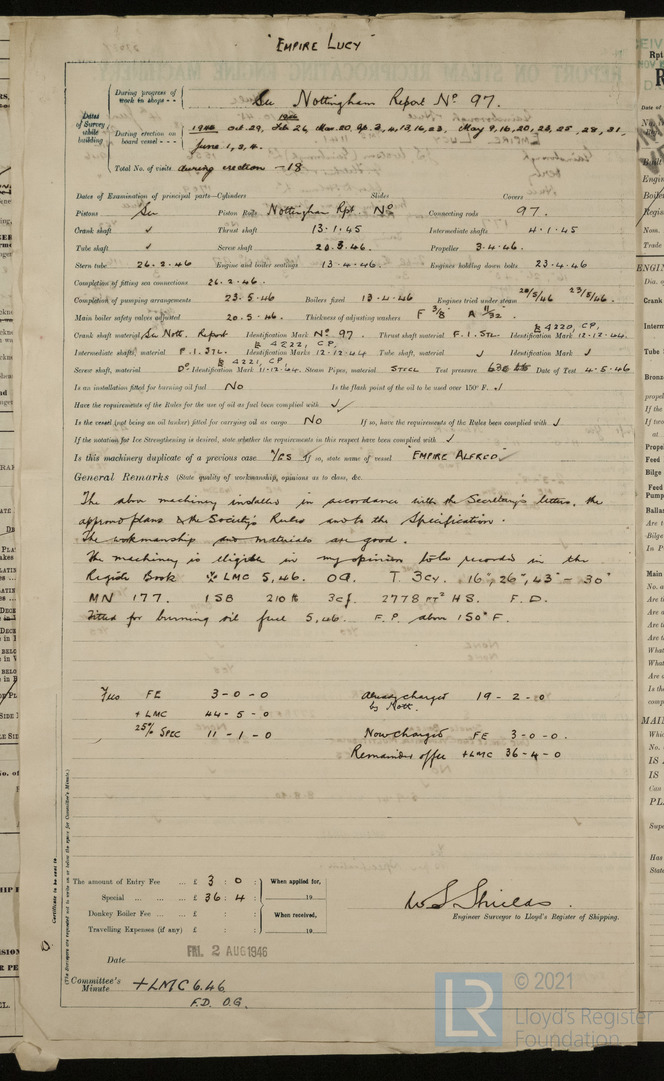 "EMPIRE LUCY"
During progress of work in shops - - See Nottingham Report No 97.
Dates of Survey while building
During erection on board vessel - - - 1945 Oct. 29, 1946 Feb 26, Mar. 20, Ap. 3, 4, 13, 16, 23, May 9, 16, 20, 23, 25, 28, 31,
June 1, 3, 4.
Total No. of visits during erection - 18
Dates of Examination of principal parts—Cylinders Slides Covers
Pistons See Piston Rods Nottingham Rpt. No Connecting rods 97.
Crank shaft ✓ Thrust shaft 13.1.45 Intermediate shafts 4.1.45
Tube shaft ✓ Screw shaft 20.3.46. Propeller 3.4.46.
Stern tube 26.2.46 Engine and boiler seatings 13.4.46. Engines holding down bolts 23.4.46
Completion of fitting sea connections 26.2.46.
Completion of pumping arrangements 23.5.46 Boilers fixed 13.4.46 Engines tried under steam 20/5/46 23/5/46.
Main boiler safety valves adjusted 20.5.46. Thickness of adjusting washers F 3/8 A 11/32
Crank shaft material See Nott. Report Identification Mark No 97. Thrust shaft material F.I.STL. Identification Mark 4220, CP, 12.12.44.
Intermediate shafts, material F.I.STL. Identification Marks 4222, CP, 12.12.44 Tube shaft, material ✓ Identification Mark ✓
Screw shaft, material Do Identification Mark 4221, CP, 11.12.44. Steam Pipes, material STEEL Test pressure Date of Test 4.5.46
Is an installation fitted for burning oil fuel No Is the flash point of the oil to be used over 150°F. ✓
Have the requirements of the Rules for the use of oil as fuel been complied with ✓
Is the vessel (not being an oil tanker) fitted for carrying oil as cargo No If so, have the requirements of the Rules been complied with ✓
If the notation for Ice Strengthening is desired, state whether the requirements in this respect have been complied with ✓
Is this machinery duplicate of a previous case YES If so, state name of vessel "EMPIRE ALFRED"
General Remarks (State quality of workmanship, opinions as to class, &c.
The above machinery installed in accordance with the Secretary's letters, the
approved plans & the Society's Rules and to the Specification.
The workmanship and materials are good.
The machinery is eligible in my opinion to be recorded in the
Register Book LMC 5,46. OG. T. 3Cy. 16", 26", 43" - 30"
MN 177. 1SB 210 lb 3cf. 2778 FT² HS. F.D.
Fitted for burning oil fuel 5,46. F.P. above 150°F.
Fees FE 3-0-0 Already charged by Nott. 19-2-0
+LMC 44-5-0
25% SPEC 11-1-0 Now charged FE 3-0-0.
Remainder of fee +LMC 36-4-0
(The Surveyors are requested not to write on or below the space for Committee's Minute.)
The amount of Entry Fee ... £ 3 : 0 : When applied for,
Special ... ... ... £ 36 : 4 : 19
Donkey Boiler Fee ... ... £ : : When received,
Travelling Expenses (if any) £ : : 19
W S Shields.
Engineer Surveyor to Lloyd's Register of Shipping.
Date FRI. 2 AUG 1946
Committee's Minute +LMC 6.46
F.D. O.G.
LR © 2021
Lloyd's Register
Foundation